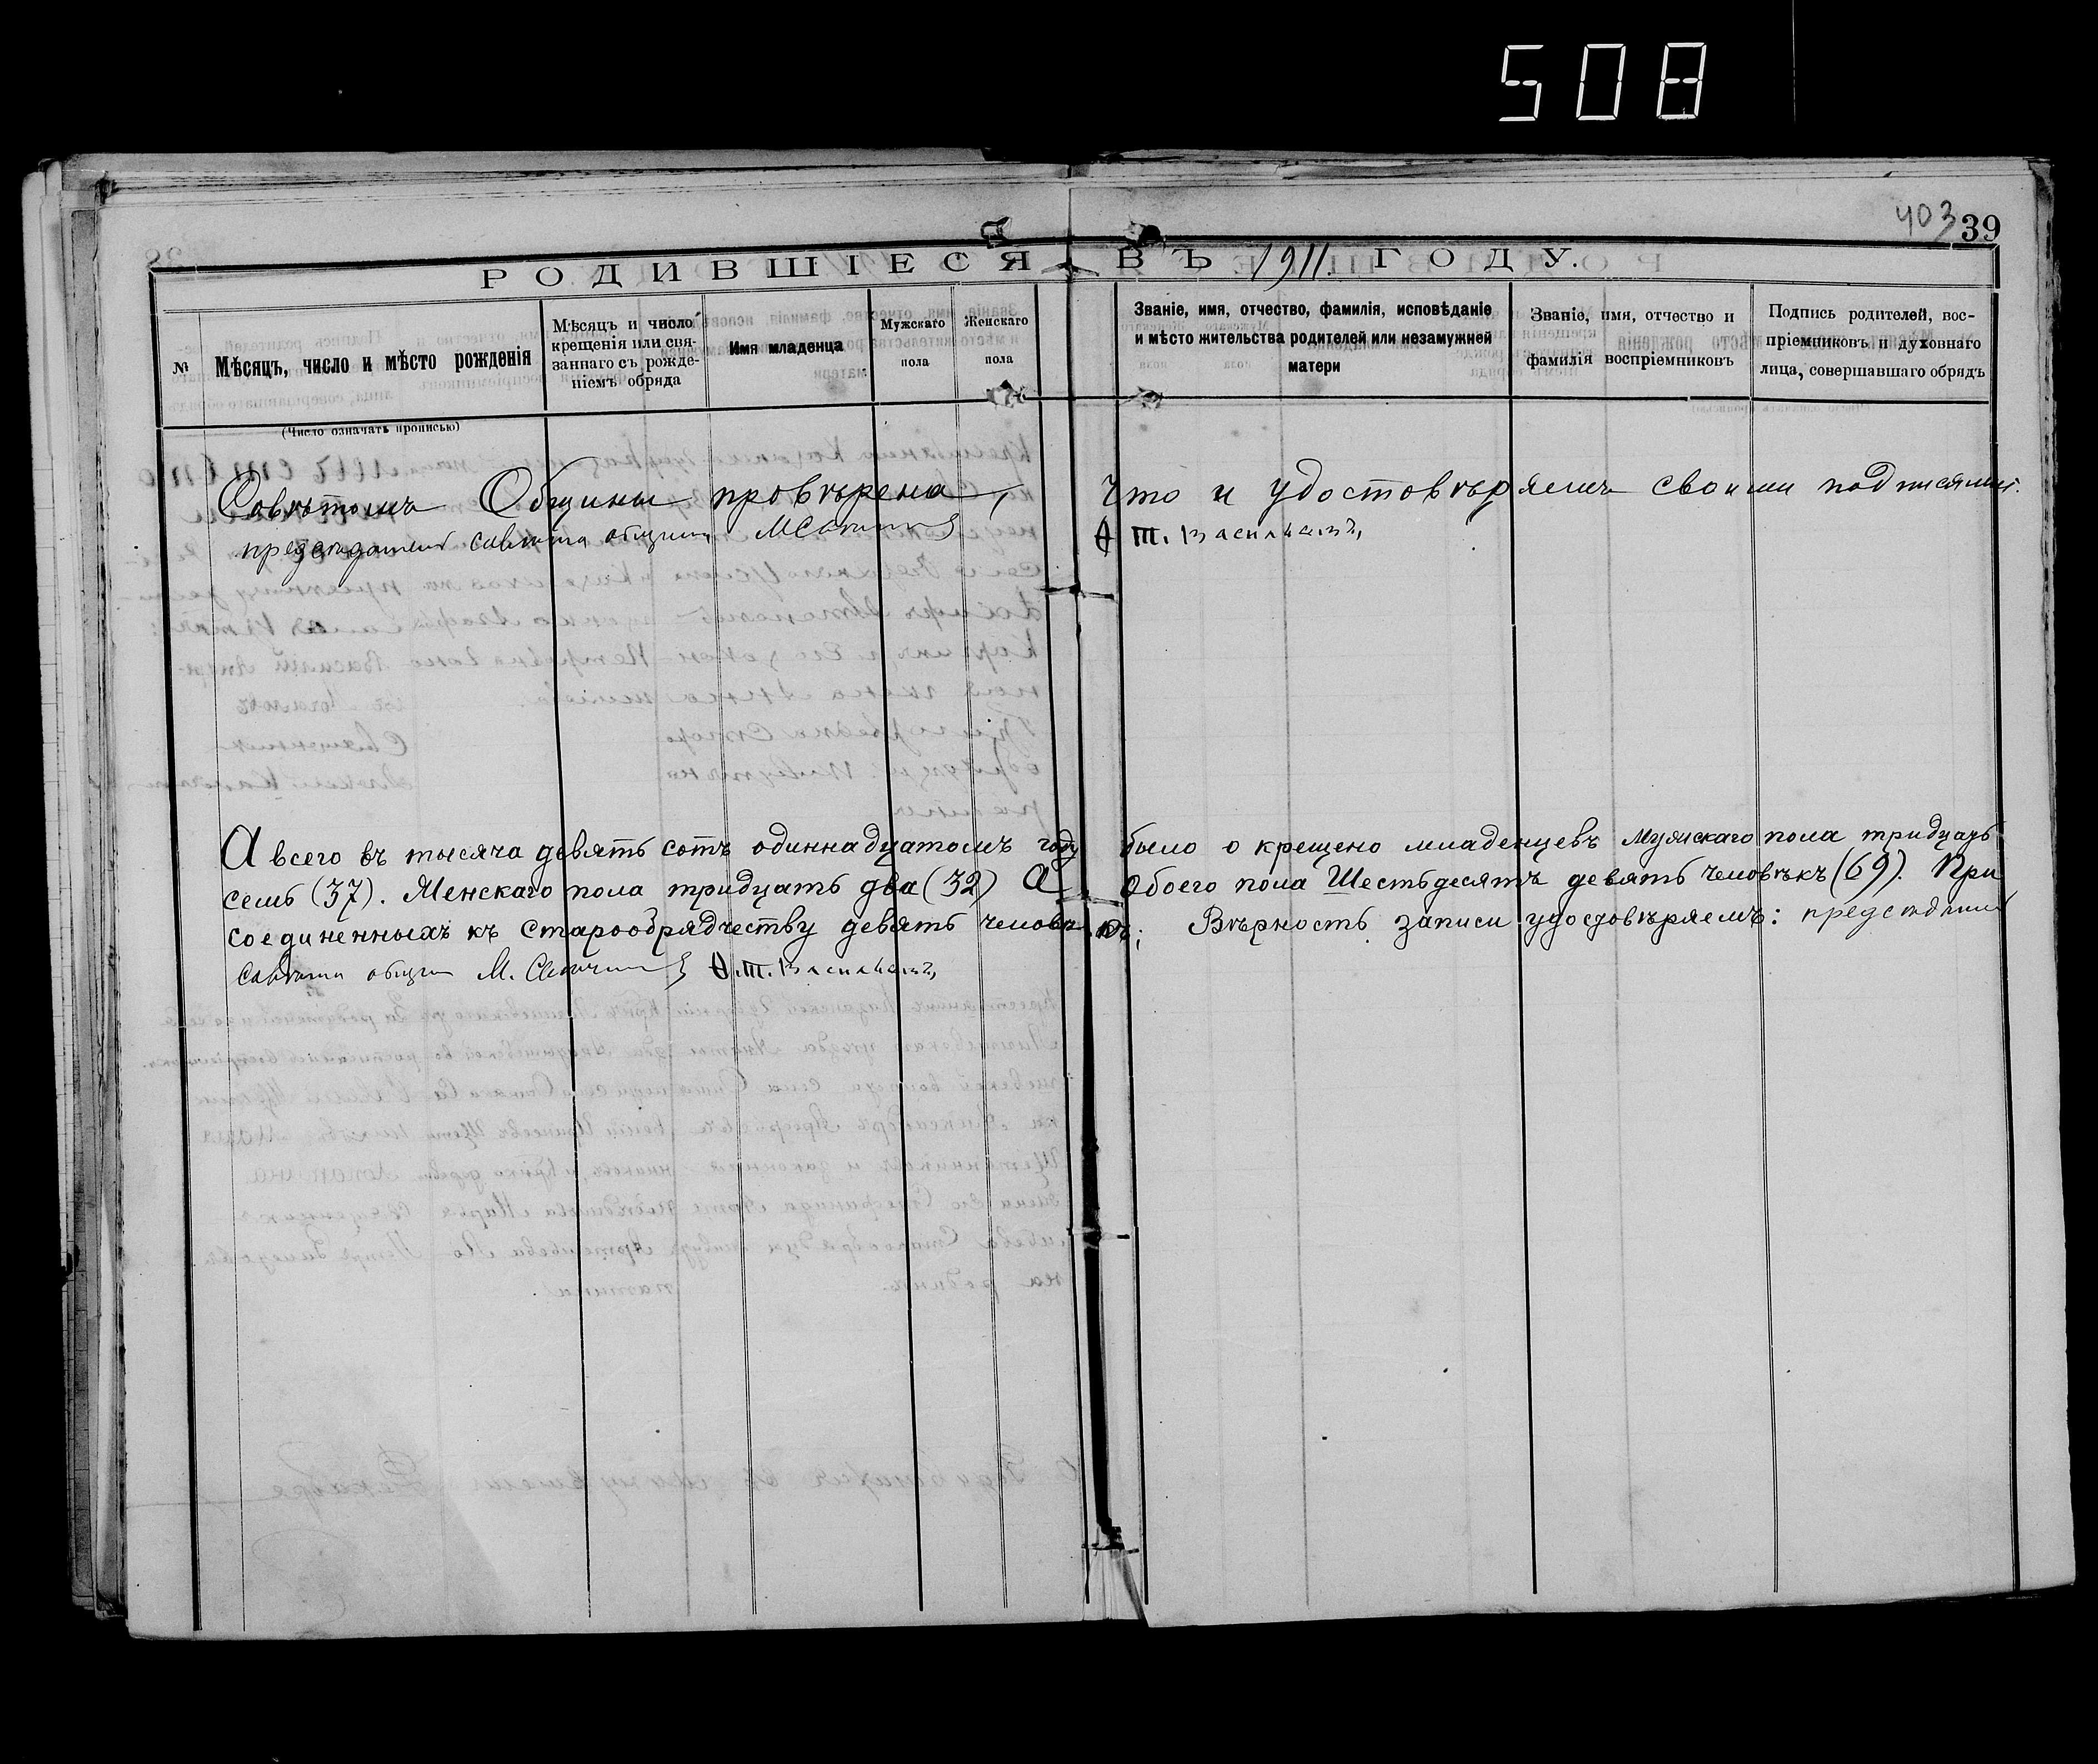 508
403 39
РОДИВШІЕСЯ ВЪ 1911 ГОДУ.
№
Мѣсяцъ, число и мѣсто рожденія
Мѣсяцъ и число крещенія или связаннаго съ рожденіемъ обряда
Имя младенца
Мужскаго пола
Женскаго пола
Званіе, имя, отчество, фамилія, исповѣданіе и мѣсто жительства родителей или незамужней матери
Званіе, имя, отчество и фамилія воспріемниковъ
Подпись родителей, воспріемниковъ и духовнаго лица, совершавшаго обрядъ
(Число означать прописью)
Совѣтомъ Общины провѣрена, Что и удостовѣряемъ своими подписями.
предсѣдатель совѣта общины
А всего въ тысяча девять сотъ одиннадцатомъ году было о крещено младенцевъ мужскаго пола тридцать
семь (37). Женскаго пола тридцать два (32) А Обоего пола Шестьдесятъ девять человѣкъ (69). При
соединенныхъ къ старообрядчеству девять человѣкъ; Вѣрность записи удостовѣряемъ: предсѣдатель
совѣта общины М.